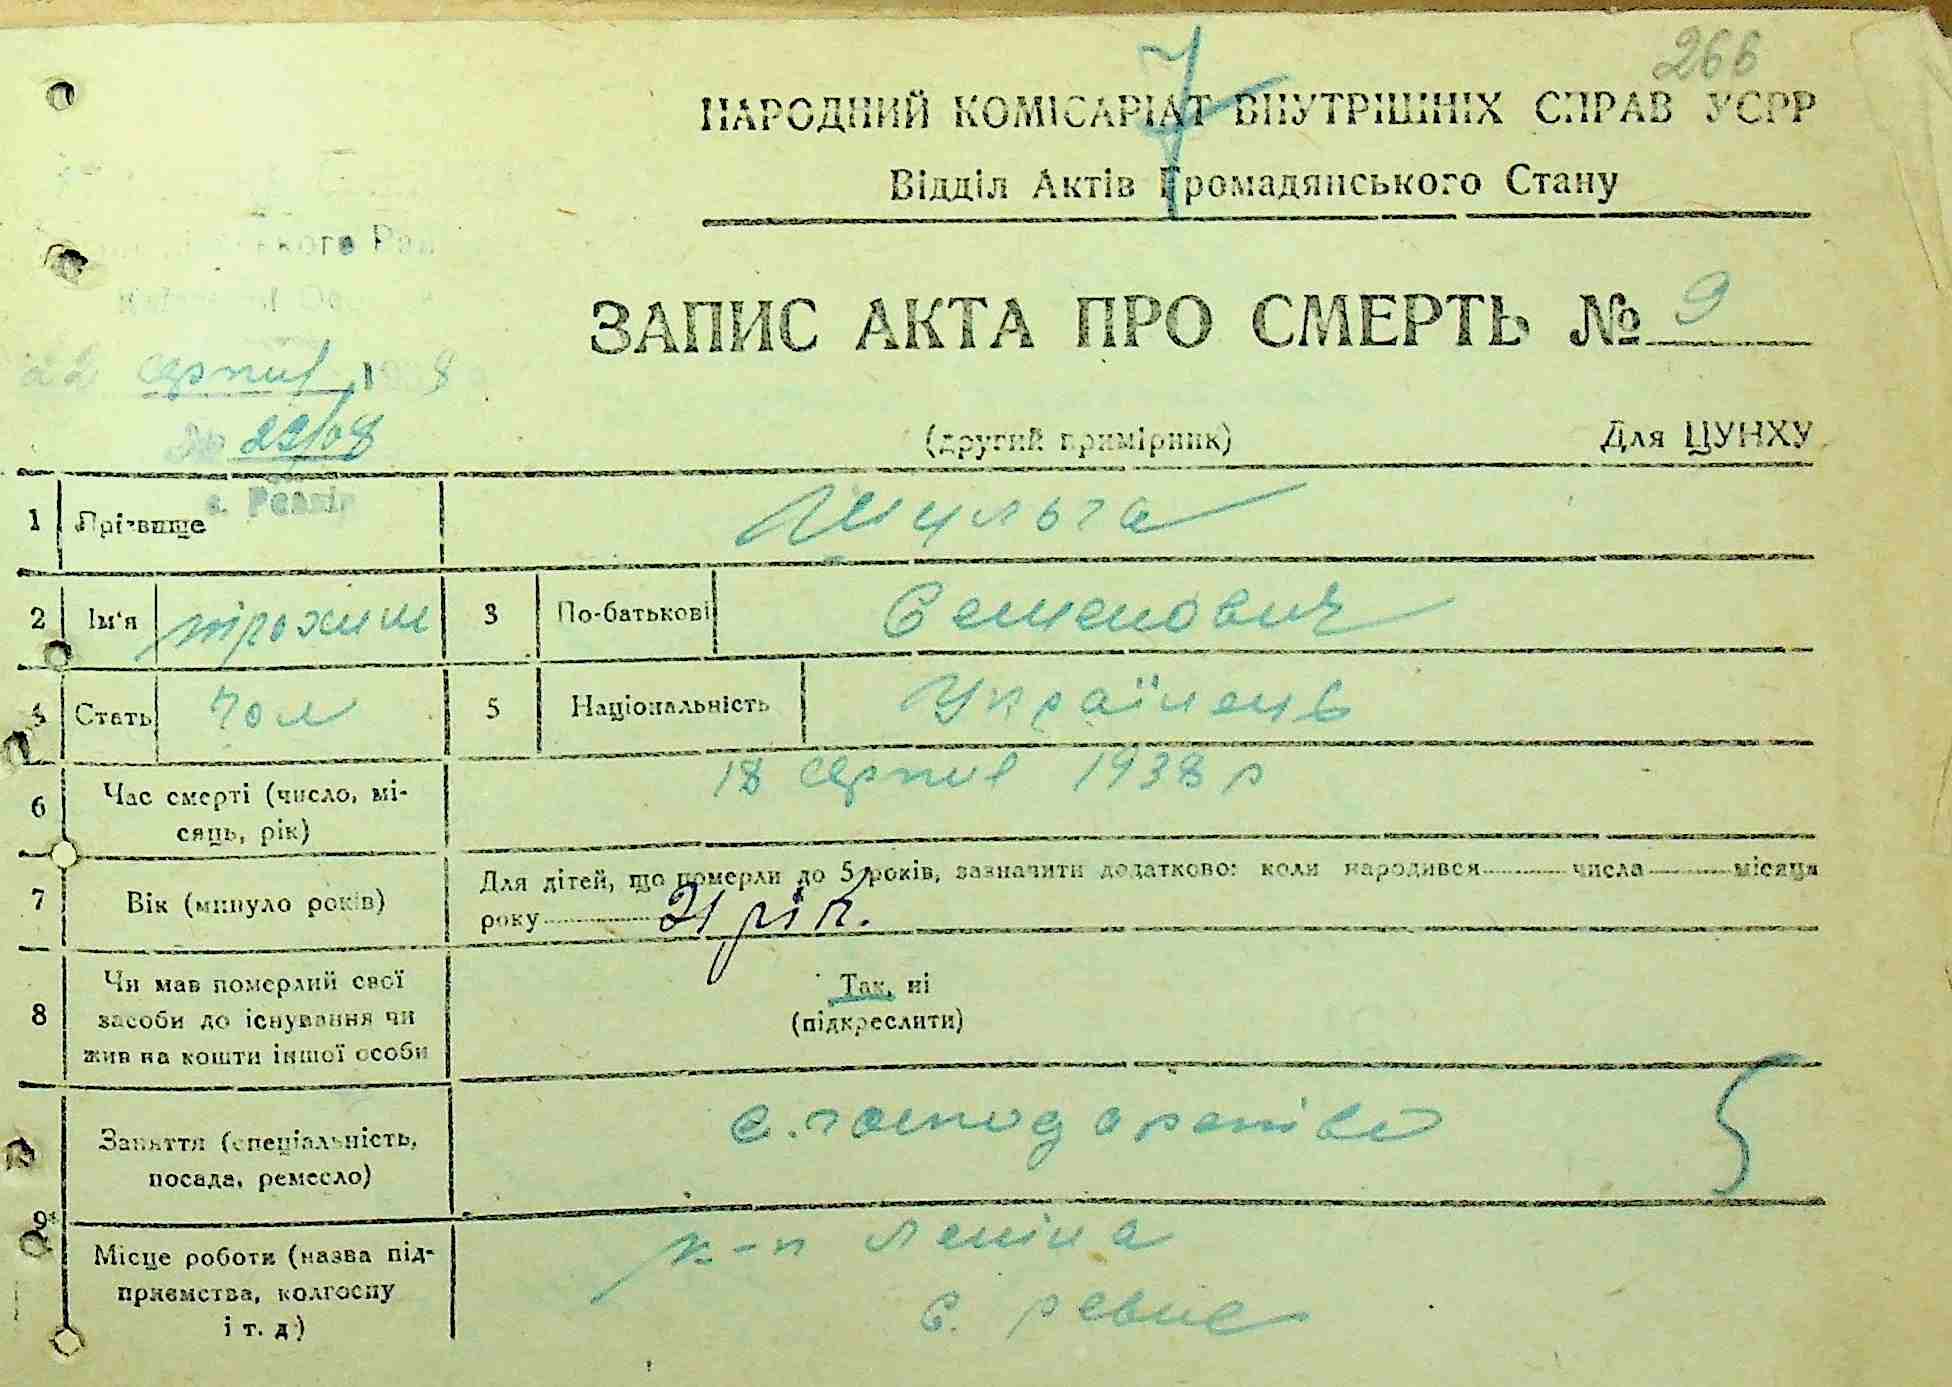 266
7
НАРОДНИЙ КОМІСАРІАТ ВНУТРІШНІХ СПРАВ УСРР
Відділ Актів Громадянського Стану
ЗАПИС АКТА ПРО СМЕРТЬ № 9
22 серпня 1938
№ 22/08
(другий примірник)
Для ЦУНХУ
с. Ревнів
1 Прізвище Шульга
2 Ім'я трохим 3 По-батькові Семенович
4 Стать чол 5 Національність Українець
6 Час смерті (число, мі-
сяць, рік) 18 серпня 1938 р
7 Вік (минуло років) Для дітей, що померли до 5 років, зазначити додатково: коли народився числа місяця
року 21 рік.
8 Чи мав померлий свої
засоби до існування чи
жив на кошти іншої особи
Так, ні
(підкреслити)
9 Заняття (спеціальність,
посада, ремесло) с. господарство
5
Місце роботи (назва під-
приємства, колгоспу
і т. д.)
к-п Леніна
с. ревне